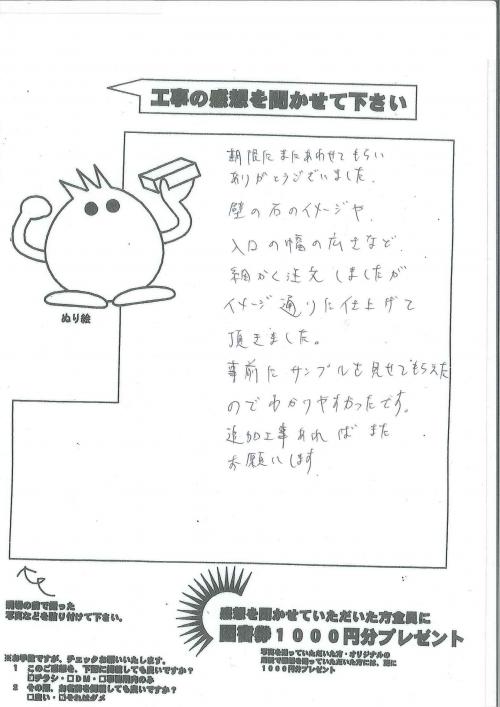 工事の感想を聞かせて下さい
期限にまにあわせてもらい
ありがとうございました。
壁の石のイメージや、
入口の幅の広さなど、
細かく注文しましたが
イメージ通りに仕上げて
頂きました。
事前にサンプルを見せてもらえた
のでわかりやすかったです。
追加工事あればまた
お願いします
ぬり絵
現場の前で撮った
写真などを貼り付けて下さい。
感想を聞かせていただいた方全員に
図書券1000円分プレゼント
写真を撮っていただいた方・オリジナルの
用紙で感想を送っていただいた方には、更に
1000円分プレゼント
※お手数ですが、チェックお願いいたします。
1 このご感想を、下記に掲載しても良いですか?
チラシ・□DM・□事務所内のみ
2 その際、お名前を掲載しても良いですか?
□良い・それはダメ